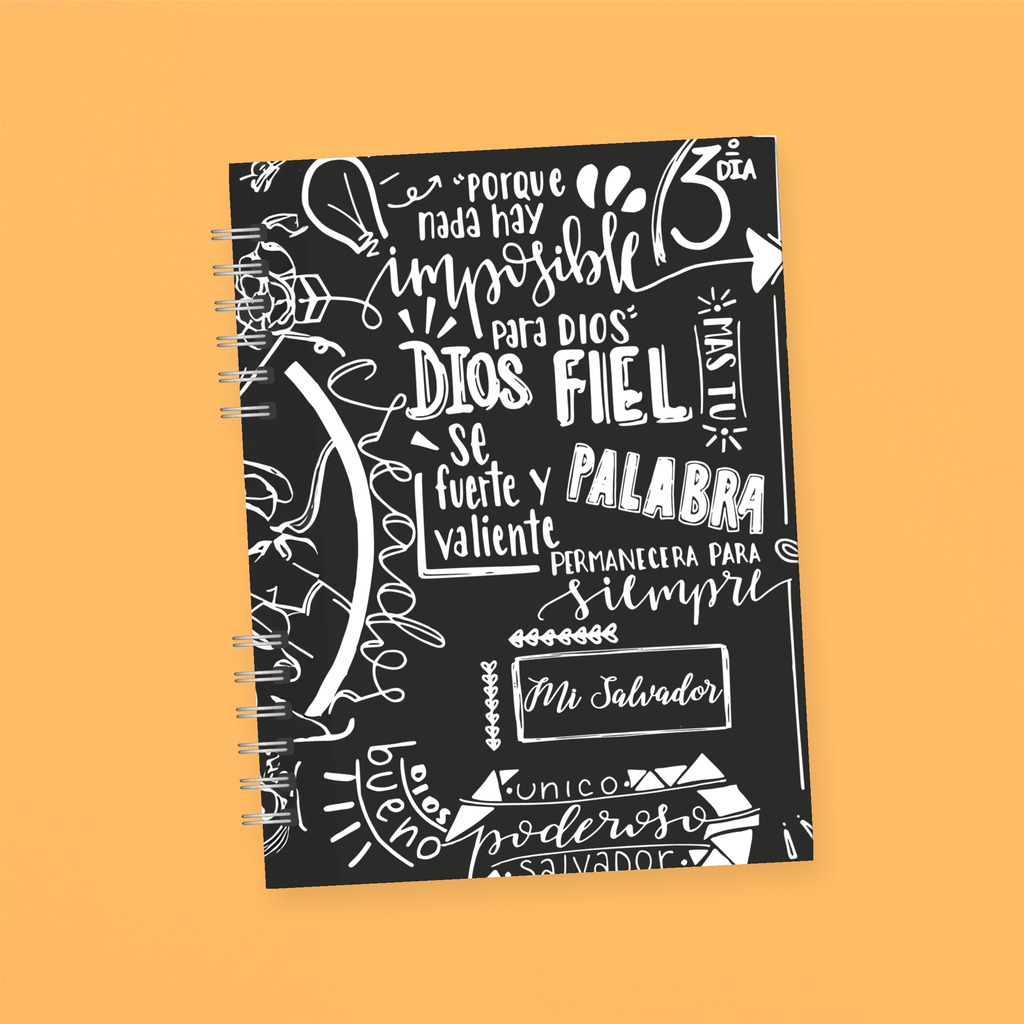 "PORQUE
nada hay
imposible
para DIOS"
3º DIA
DIOS FIEL
MAS TU
se
fuerte y
valiente
PALABRA
PERMANECERA PARA
siempre
Mi Salvador
DIOS
bueno
·UNICO·
poderoso
·salvador·